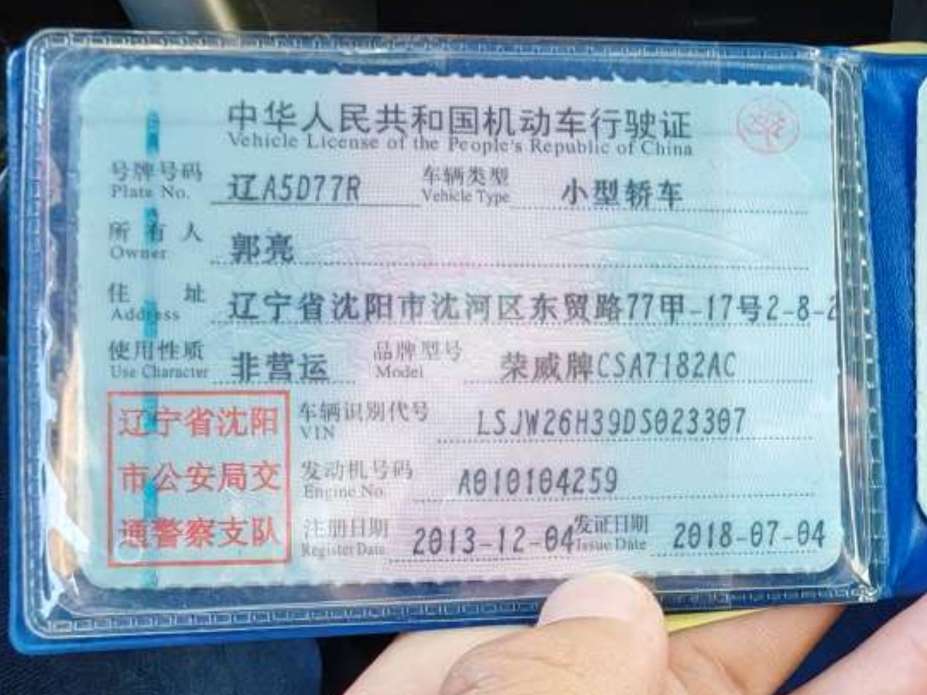 中华人民共和国机动车行驶证
Vehicle License of the People's Republic of China
号牌号码 辽A5D77R 车辆类型 小型轿车
Plate No. Vehicle Type
所有人 郭亮
Owner
住址 辽宁省沈阳市沈河区东贸路77甲-17号2-8-2
Address
使用性质 非营运 品牌型号 荣威牌CSA7182AC
Use Character Model
辽宁省沈阳
市公安局交
通警察支队
车辆识别代号 LSJW26H39DS023307
VIN
发动机号码 A010104259
Engine No.
注册日期 2013-12-04 发证日期 2018-07-04
Register Date Issue Date